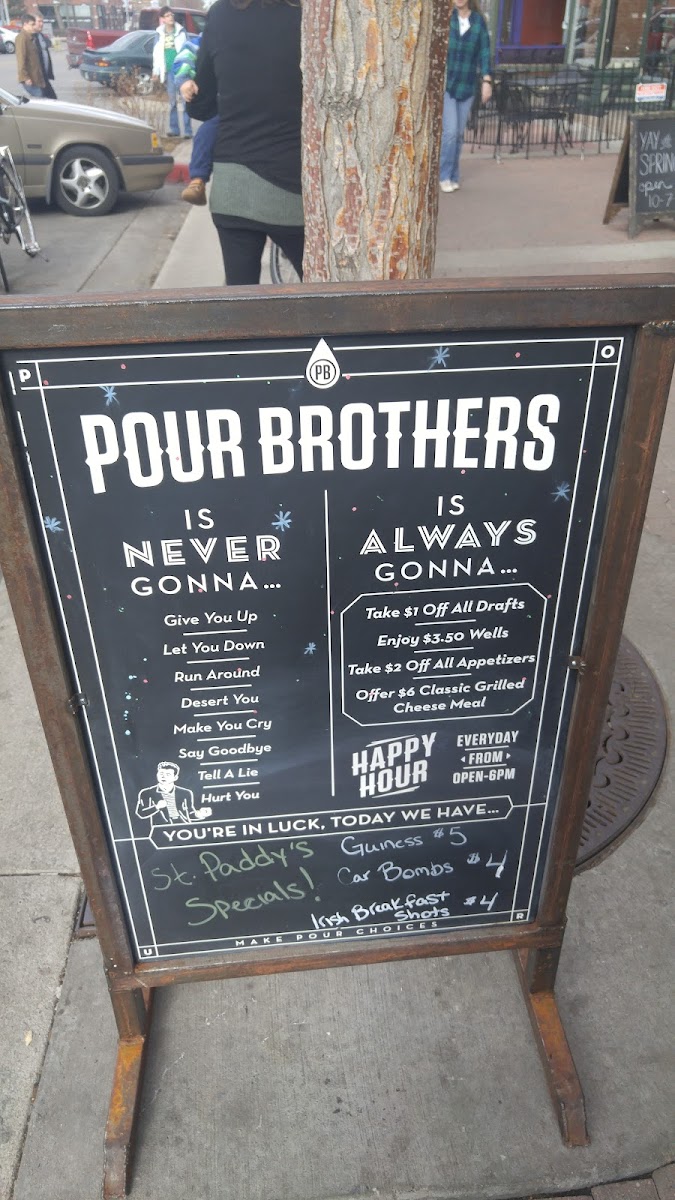 P
PB
O
POUR BROTHERS
IS
NEVER
GONNA...
Give You Up
Let You Down
Run Around
Desert You
Make You Cry
Say Goodbye
Tell A Lie
Hurt You
IS
ALWAYS
GONNA...
Take $1 Off All Drafts
Enjoy $3.50 Wells
Take $2 Off All Appetizers
Offer $6 Classic Grilled
Cheese Meal
HAPPY
HOUR
EVERYDAY
FROM
OPEN-6PM
YOU'RE IN LUCK, TODAY WE HAVE...
St. Paddy's
Specials!
Guiness $5
Car Bombs $4
Irish Breakfast
Shots $4
U
MAKE POUR CHOICES
R
YAY
SPRING
open
10-7